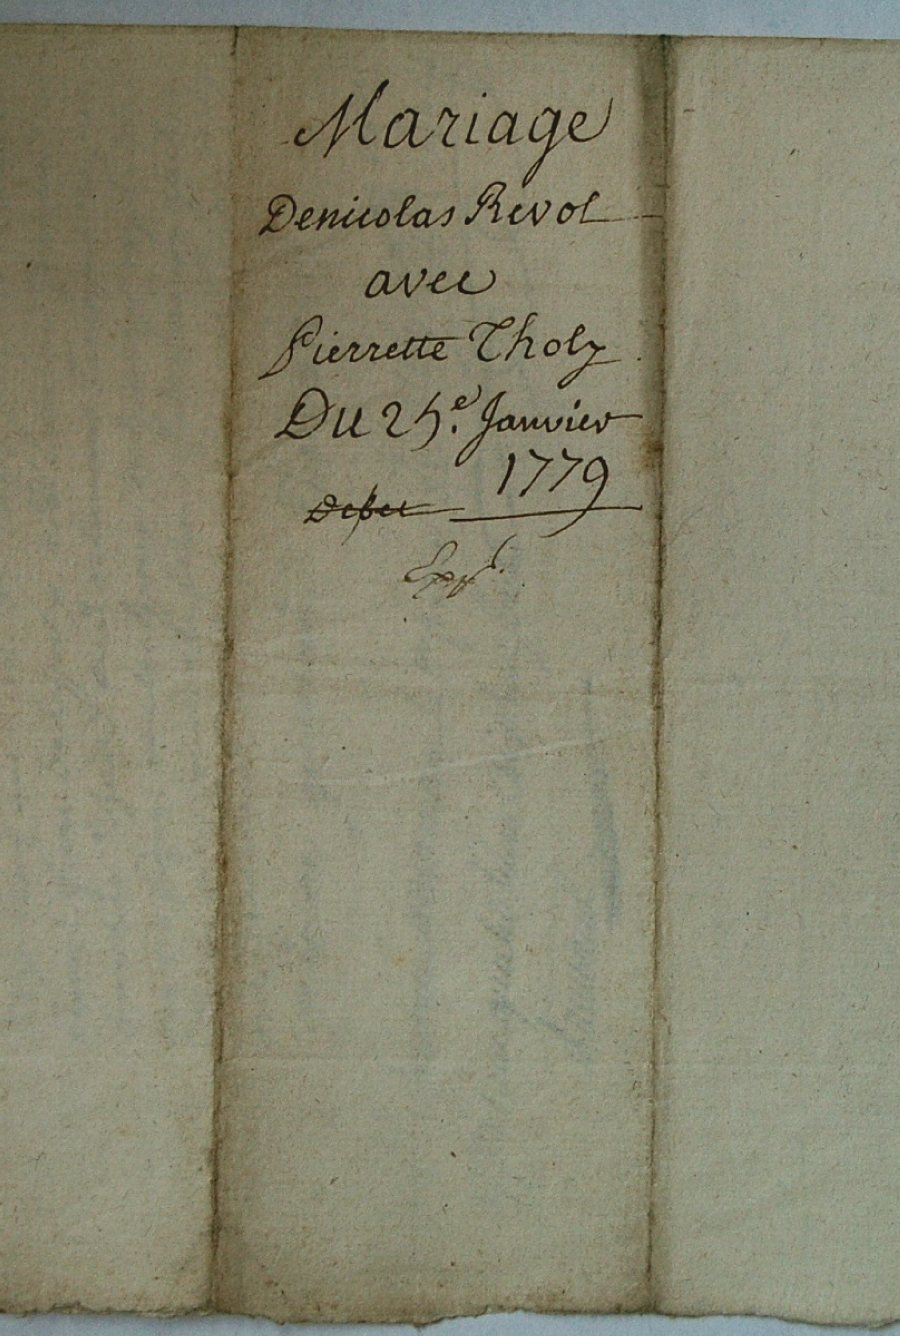 Mariage
Denicolas Revol
avec
Pierrette Tholy
Du 25.e Janvier
1779